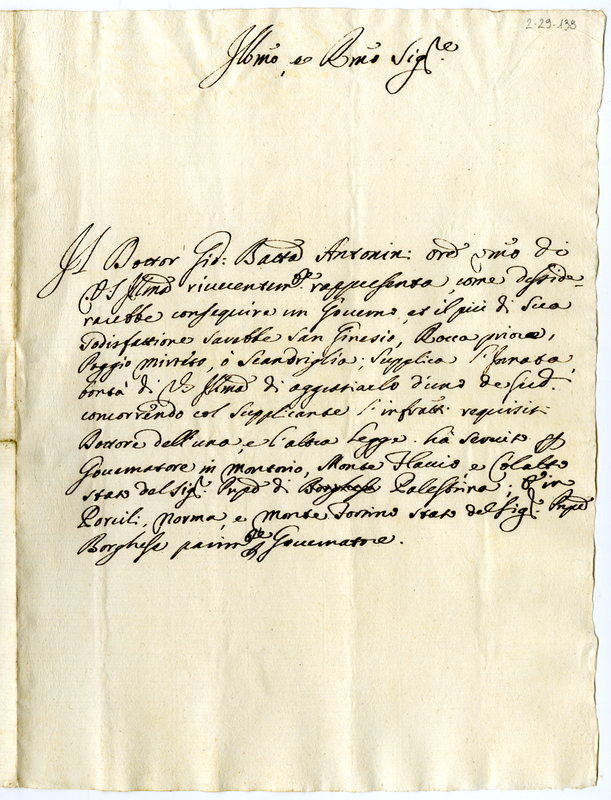 2-29-138
Jllmo, e Rmo Sig.re
Jl Dottor Gio: Batta Antonini ord smo di
V.S Jllma riverentem.te rappresenta, come deside-
rarebbe conseguire un Governo, et il più di sua
sodisfattione sarebbe San Ginesio, Rocca priora,
Poggio Mirteto, ò Scandriglia; supplica l'innata
bontà di V.S Jllma di aggratiarlo d'uno de sud.
concorrendo col supplicante l'infratti requisiti
Dottore dell'una, e l'altra legge. hà servito p
Governatore in Montorio, Monte Flavio e Colalto
stato del Sig. Prnpe di Borghese Palestrina. E in
Porcili, Norma, e Monte Fortino stato del Sig. Prnpe
Borghese parim.te p Governatore.